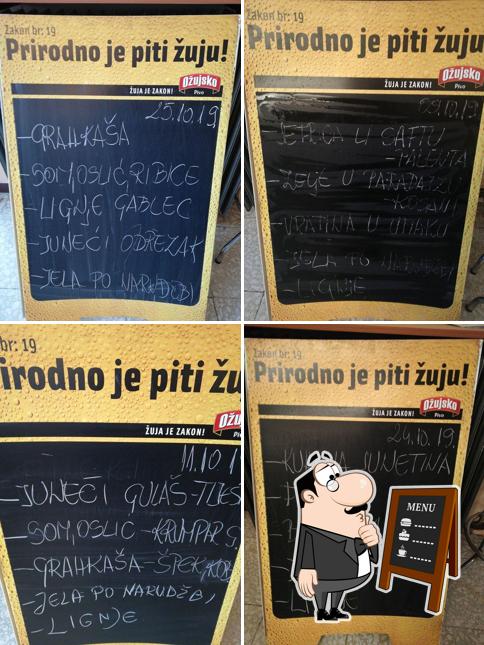 Zakon br: 19
Prirodno je piti žuju!
ŽUJA JE ZAKON!
Ožujsko
Pivo
25.10.19
-GRAHKAŠA
-SOM,OSLIĆ,RIBICE
-LIGNJE GABLEC
-JUNEĆI ODREZAK
-JELA PO NARUĐŽBI
Zakon br: 19
Prirodno je piti žuju
ŽUJA JE ZAKON!
Ožujsko
Pivo
.10.19
U SAFTU
-PALENTA
-ZELJE U
-VRATINA U UMAKU
-JELA PO
-LIGNJE
br: 19
irodno je piti žu
ŽUJA JE ZAKON!
Ožu
Pi
11.10.1
-JUNEĆI GULAŠ-TIJES
-SOM,OSLIĆ-KRUMPAR S.
-GRAHKAŠA-ŠPEK,KOB
-JELA PO NARUDŽBI
-LIGNJE
Zakon br: 19
Prirodno je piti žuju!
ŽUJA JE ZAKON!
Ožujsko
Pivo
24.10.19
JUNETINA
MENU